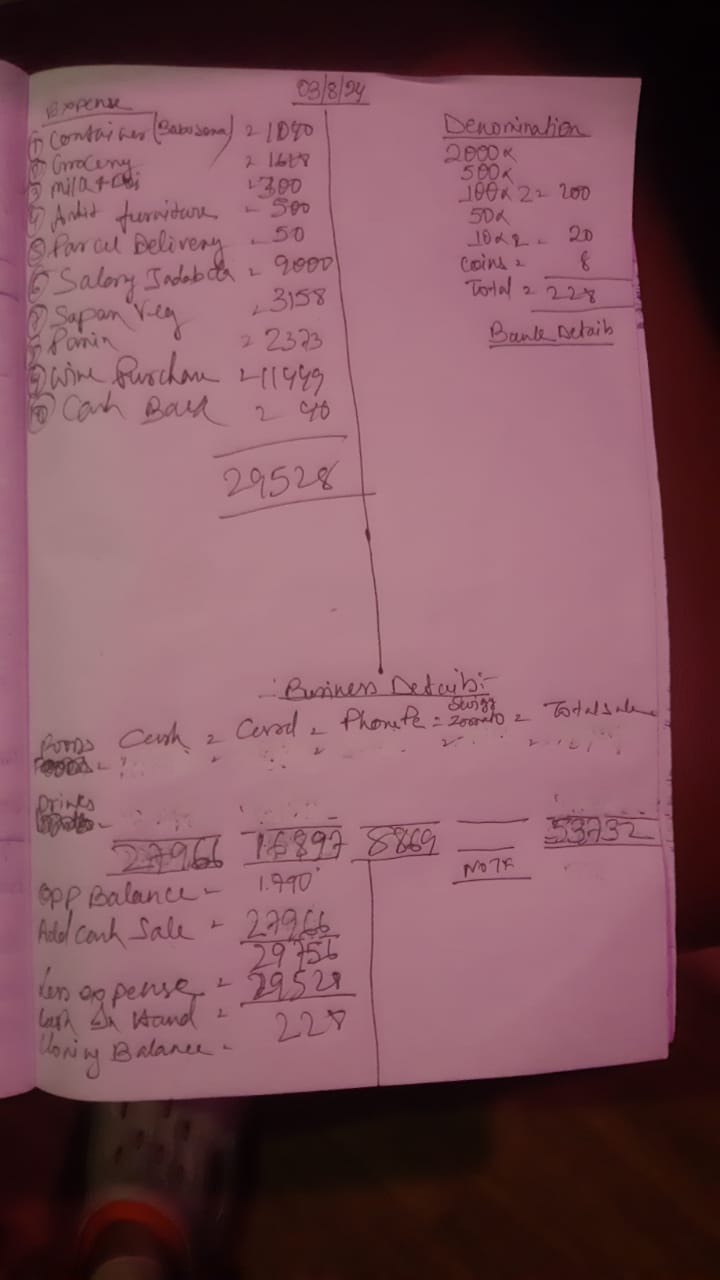 03/8/24
Expense
① Container (Babusona) = 1040
② Grocery = 1648
③ Milk + = 300
④ Ankit furniture = 500
⑤ Parcel Delivery = 50
⑥ Salary Jadab da = 9000
⑦ Sapan Veg = 3158
= 2373
⑨ Wine Purchase = 11449
⑩ Cash Back = 40
29528
Denomination
2000x
500x
100x 2 = 200
50x
10x2 = 20
Coins = 8
Total = 228
Bank Details
:- Business Details :-
Foods Cash = Card = PhonePe = Swiggy Zomato = Total sale
Drinks
27966 16897 8869 53732
NOTE
Opp Balance = 1790
Add Cash Sale = 27966
29756
Less expense = 29528
Cash In Hand = 228
Closing Balance =